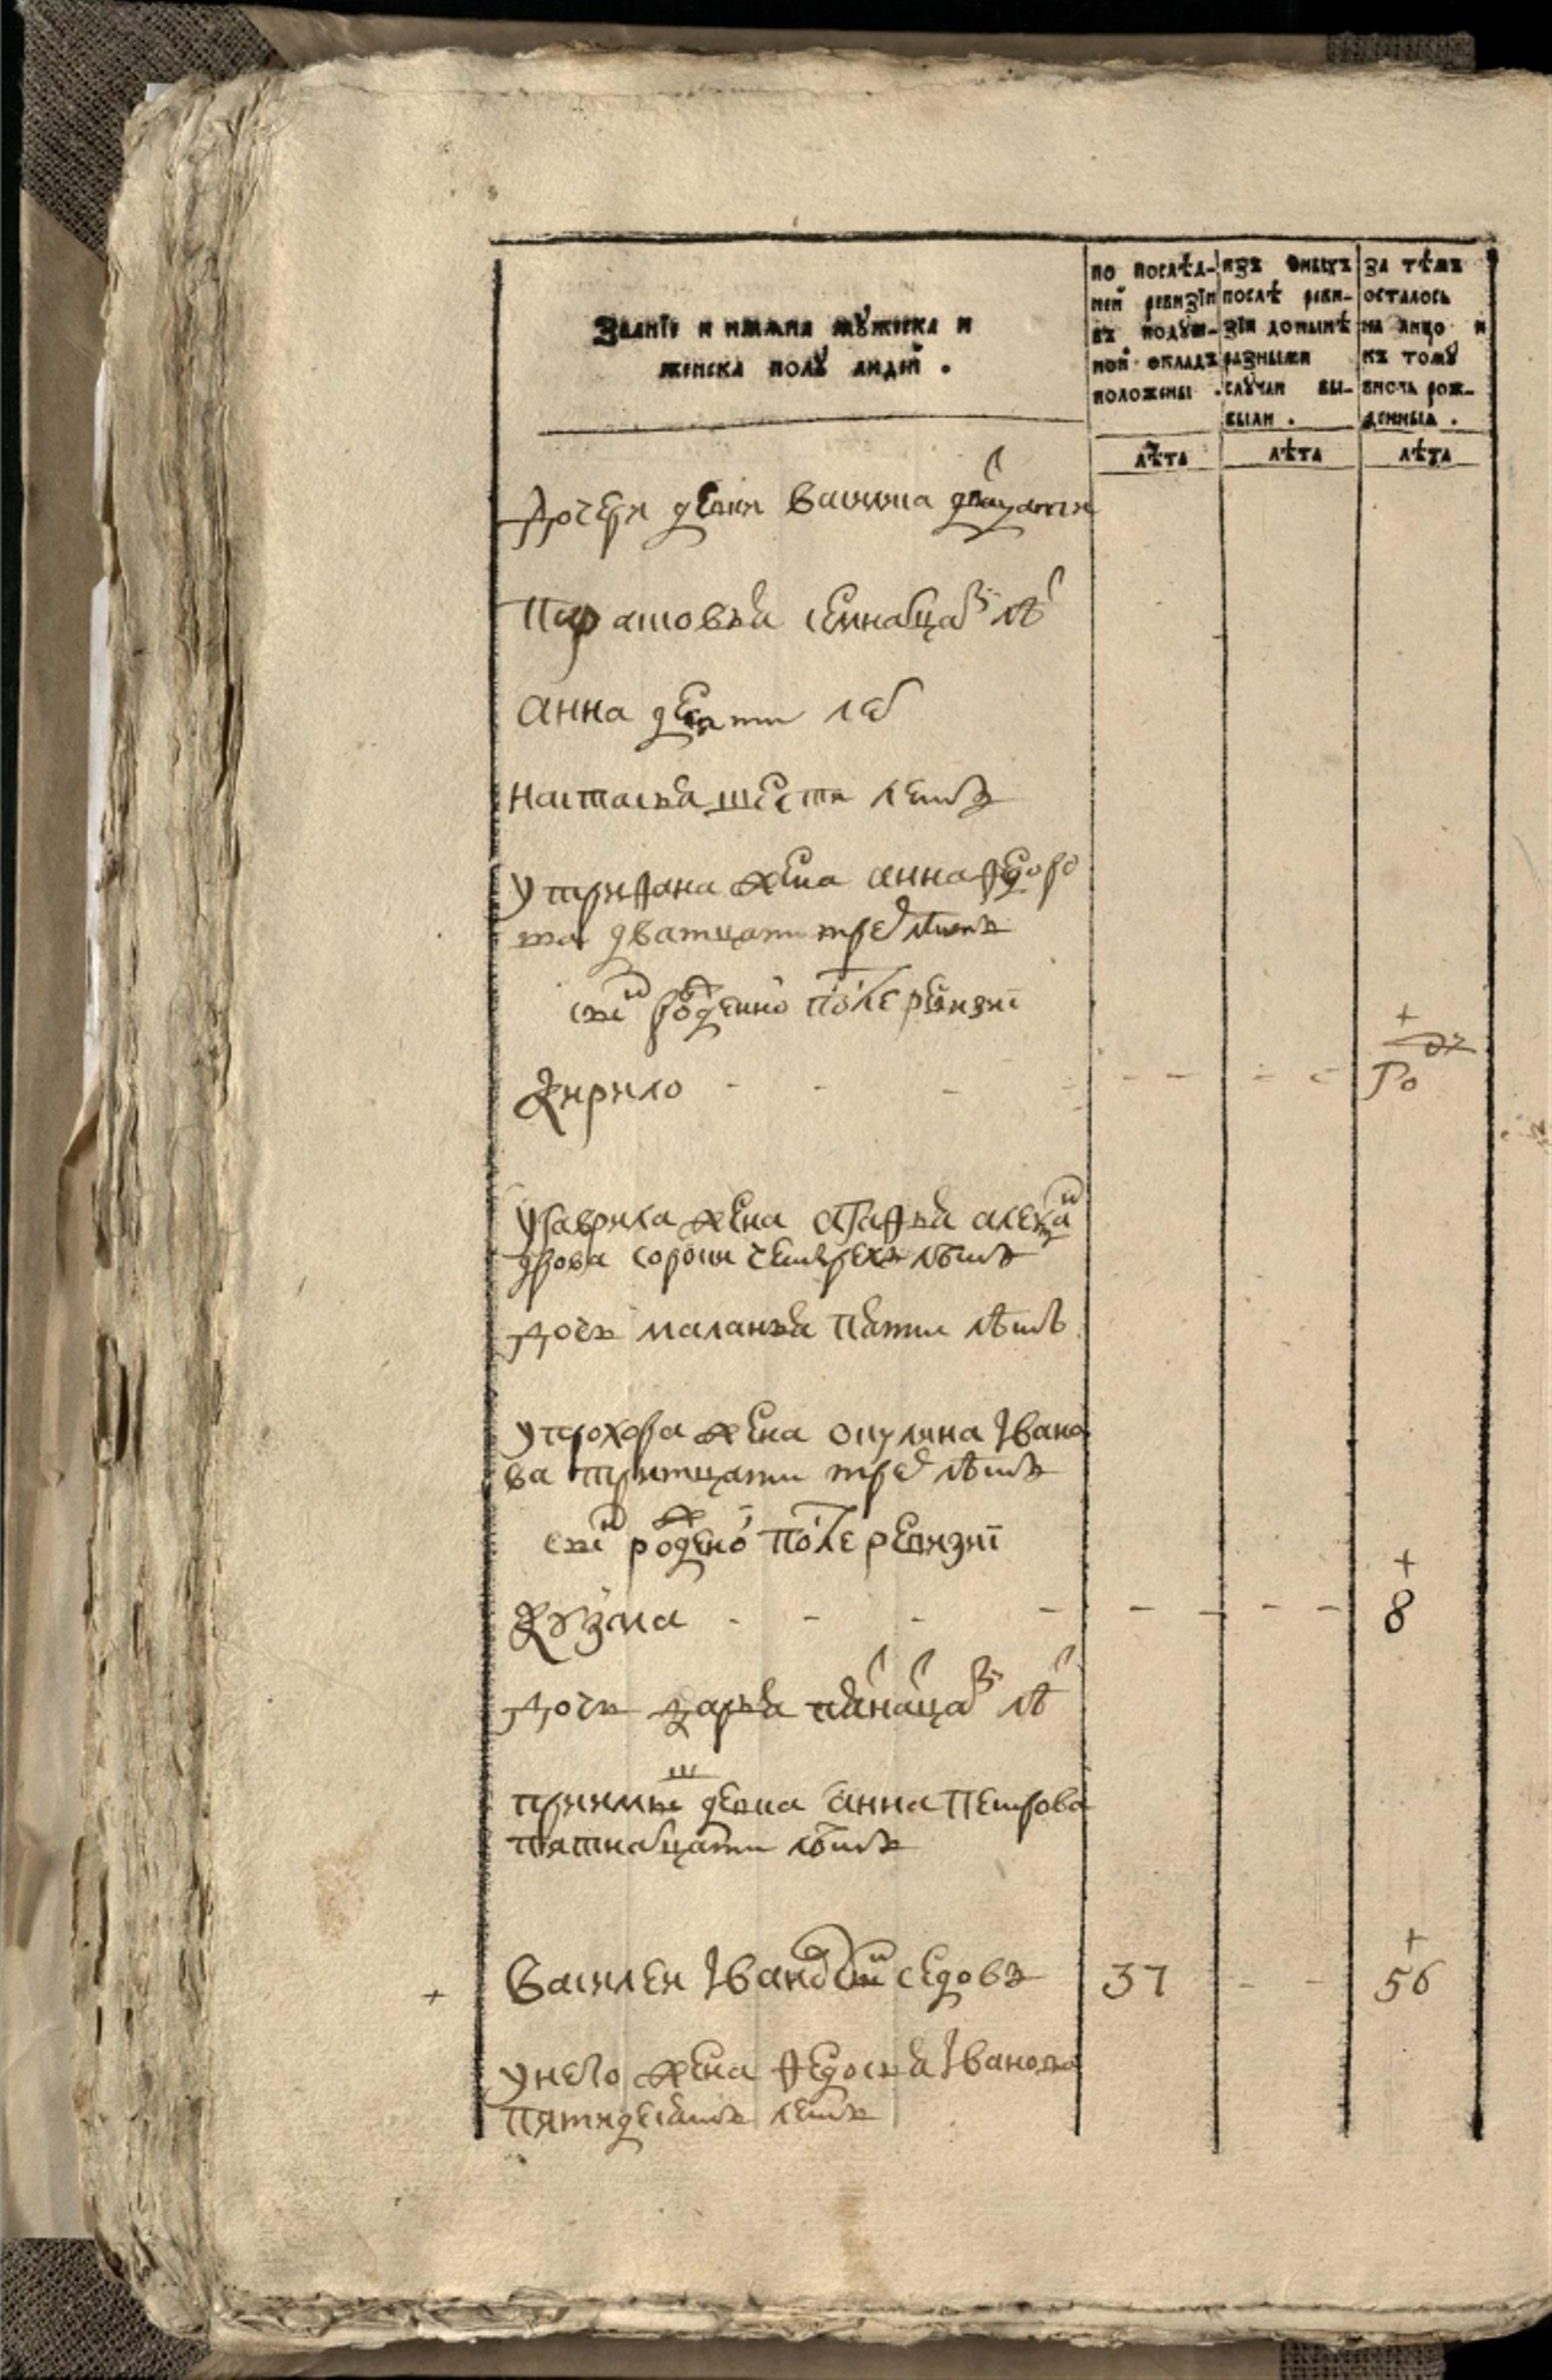 Званїе и имѧна мꙋжеска и
женска полꙋ людей .
по послѣд-
ней ревизїи
въ подꙋш-
ной окладъ
положены .
изъ оныхъ
послѣ реви-
зїи до нынѣ
разными
слꙋчаи вы-
были .
за тѣмъ
осталось
на лицо и
къ томꙋ
вновь рож-
денныѧ .
лѣта
лѣта
лѣта
дочери девки васиса двацати
парасковья семнадцат лѣ
анна девяти лет
настасья шести летъ
у трифана жена анна федоро
ва дватцати трех лѣтъ
сын рожденной после ревизиї
кирило - - - - - - - +
Ро
у гаврила жена агафья алексан
дрова сорока четырехъ лѣтъ
дочь маланья пяти лѣтъ
у прохора жена окулина Ивано
ва тритцати трех лѣтъ
сын рожденой после ревизиї
кузма - - - - - - - - +
8
дочь дарья пятнацат лѣ
приимыш девка анна петрова
пятнадцати лѣтъ
+ Василеи Иванов сын седовъ 37 - - +
56
у него жена федосья Иванова
пятидесятъ летъ